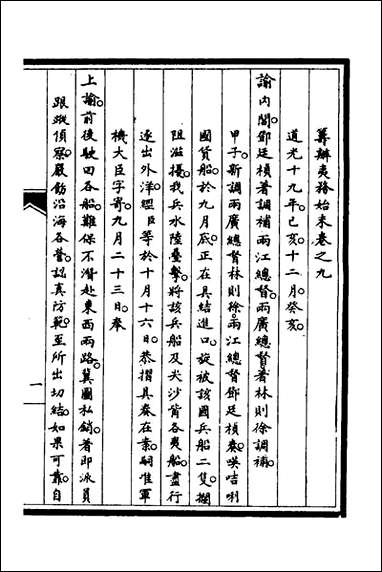 籌辦夷務始末卷之九
道光十九年己亥十二月癸亥
諭內閣鄧廷楨著調補兩江總督兩廣總督著林則徐調補
甲子新調兩廣總督林則徐兩江總督鄧廷楨奏𠸄咭唎
國貨船於九月底正在具結進口旋被該國兵船二隻攔
阻滋擾我兵水陸轟擊將該兵船及尖沙嘴各夷船盡行
逐出外洋臣等於十月十六日恭摺具奏在案嗣准軍
機大臣字寄九月二十三日奉
上諭前後駛回各船難保不潛赴東西兩路冀圖私銷著即派員
跟蹤偵察嚴飭沿海各營認真防範至所出切結如果可靠自
一